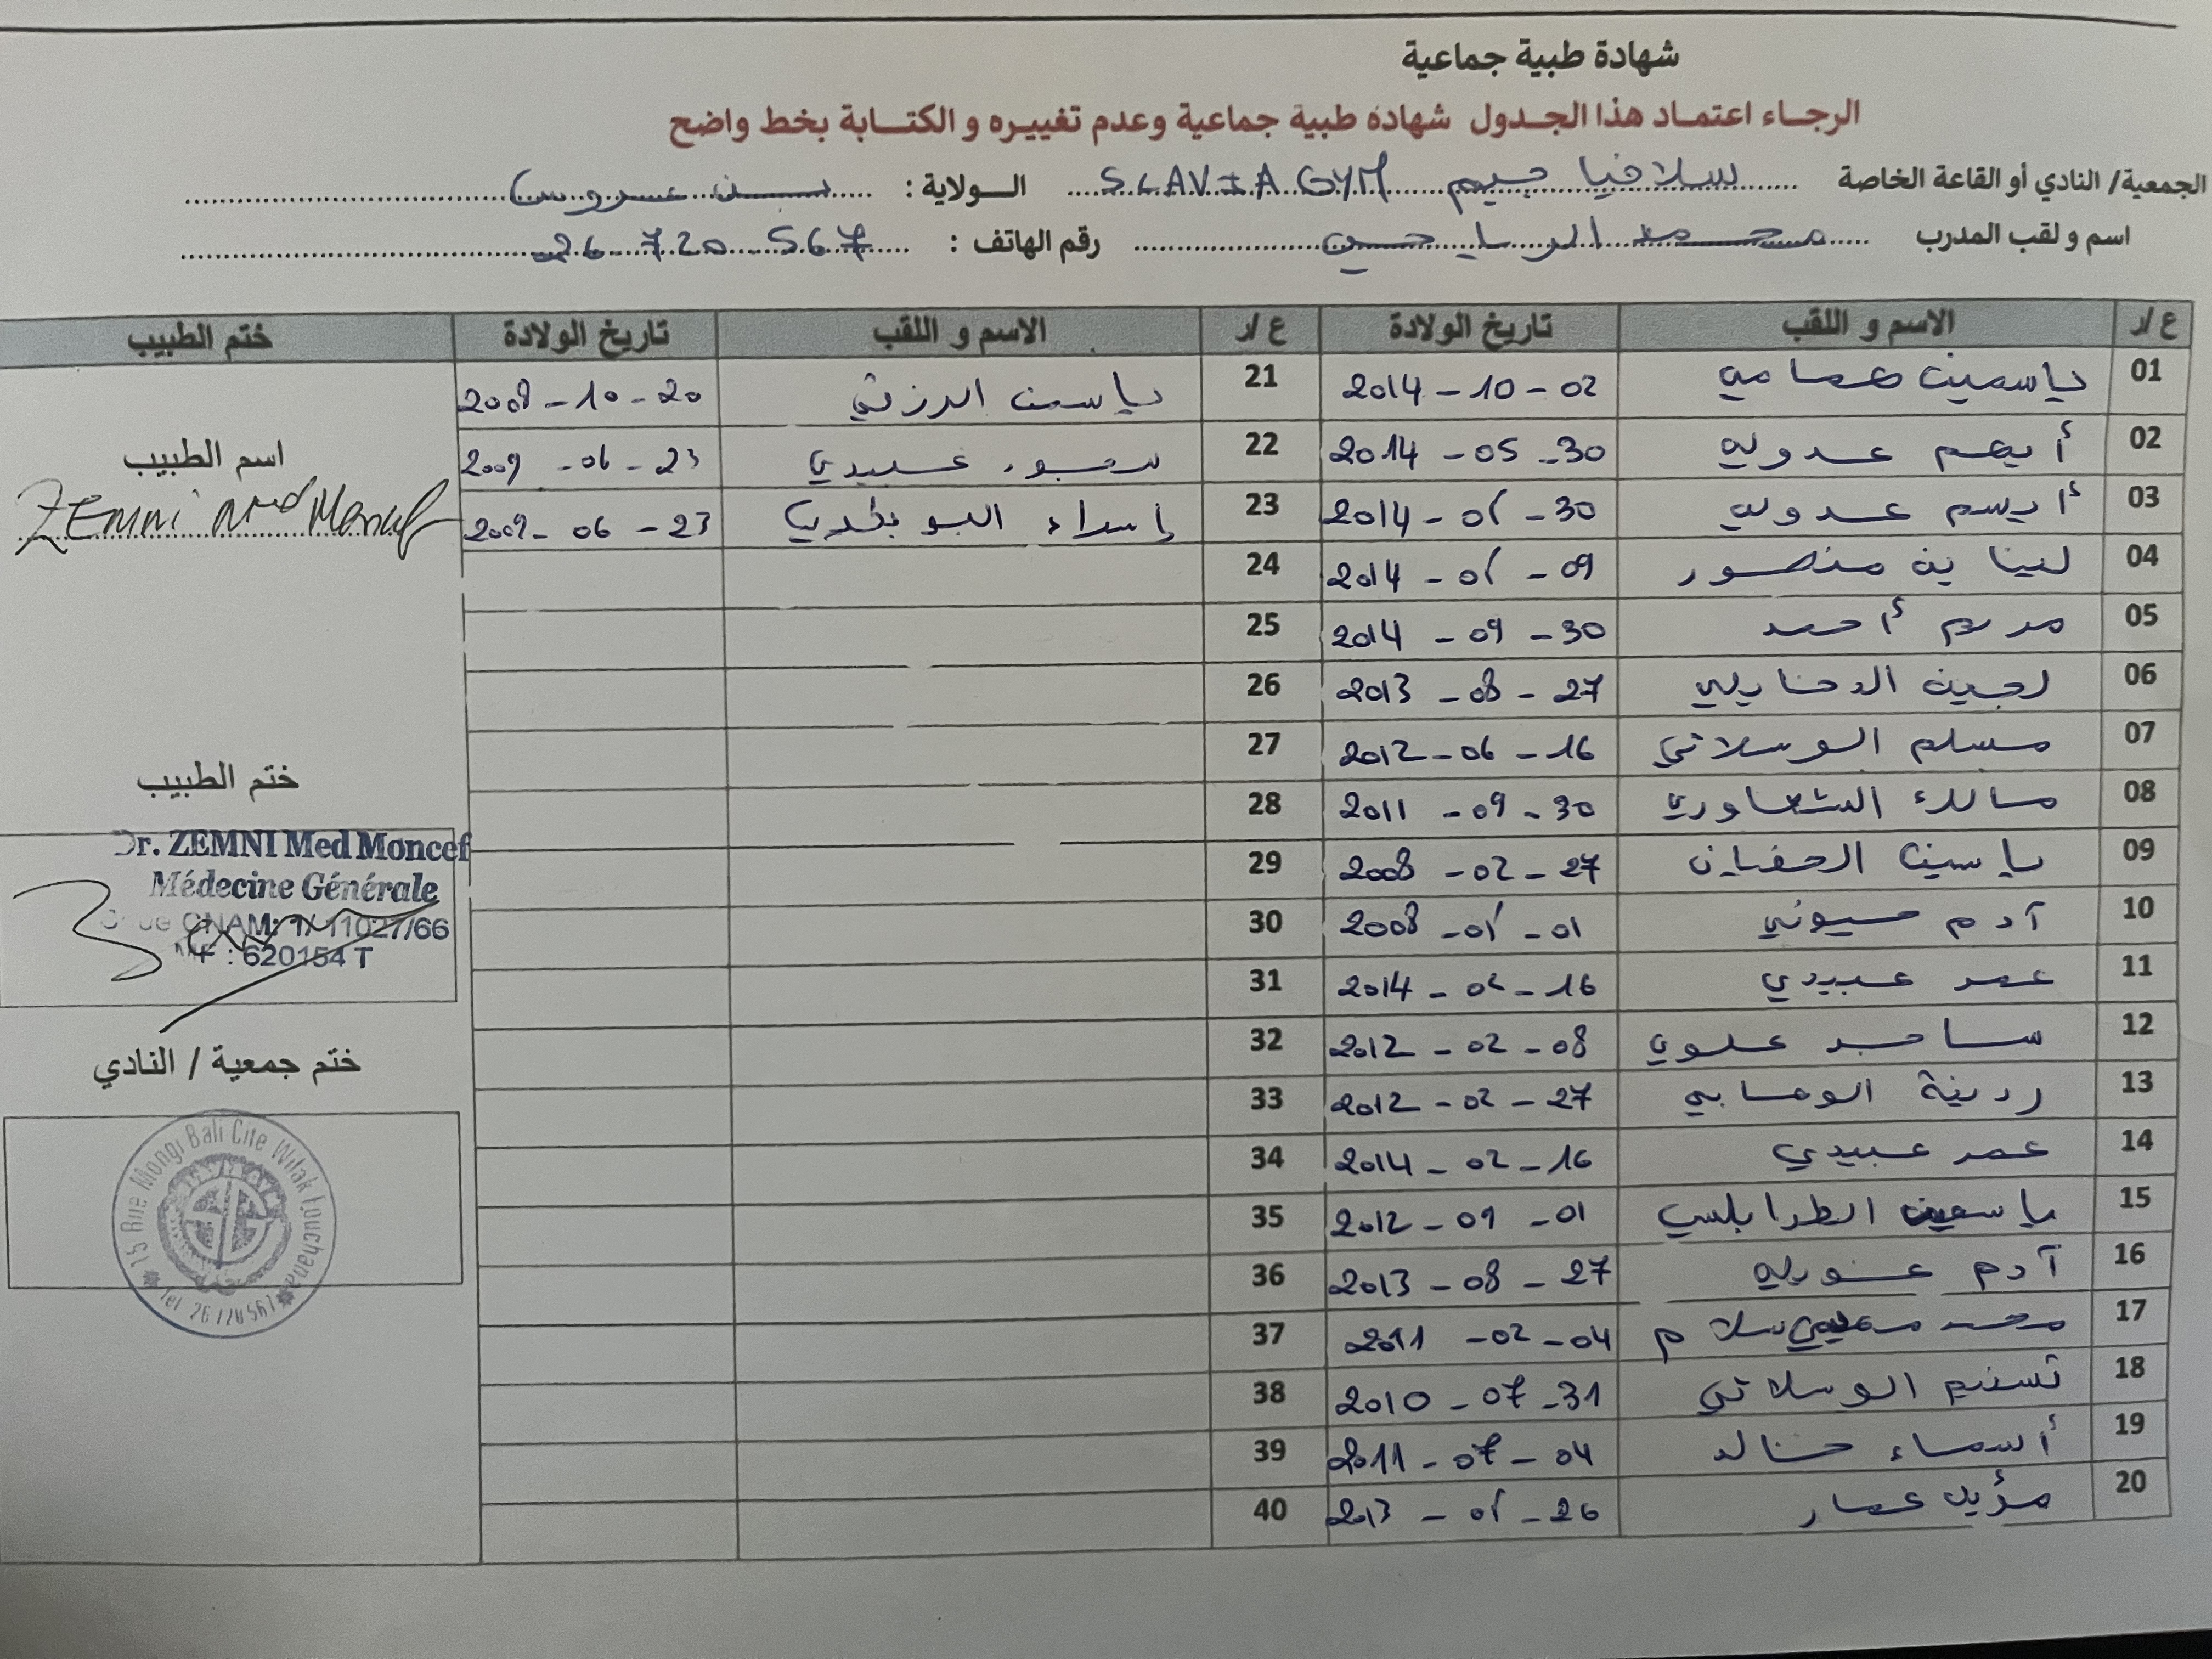 شهادة طبية جماعية
الرجاء اعتماد هذا الجدول شهادة طبية جماعية وعدم تغييره و الكتابة بخط واضح
الجمعية/ النادي أو القاعة الخاصة سلافيا جيم SLAVIA GYM الولاية : بن عروس
اسم و لقب المدرب محمد الرياحي رقم الهاتف : 26 720 567
ع/ر الاسم و اللقب تاريخ الولادة ع/ر الاسم و اللقب تاريخ الولادة ختم الطبيب
01 ياسمين همامي 2014 - 10 - 02 21 ياسين الرزقي 2008 - 10 - 20
02 أيهم عدولي 2014 - 05 - 30 22 عبيدي 2009 - 06 - 23
اسم الطبيب
ZEMNI Med Moncef
03 عدولي 2014 - 30 23 إسراء 2009 - 06 - 23
04 لينا بن منصور 2014 - 09 24
05 مريم أحمد 2014 - 09 - 30 25
06 لجين الدخايلي 2013 - 08 - 27 26
07 مسلم الوسلاتي 2012 - 06 - 16 27
ختم الطبيب
08 مالك 2011 - 09 - 30 28
09 ياسين 2008 - 02 - 27 29
10 آدم 2008 - 01 30
11 عمر عبيدي 2014 - 16 31
Dr. ZEMNI Med Moncef
Médecine Générale
CNAM: 1/11027/66
MF : 620154 T
12 ساجد علوي 2012 - 02 - 08 32
ختم جمعية / النادي
13 ردينة الوهابي 2012 - 02 - 27 33
14 عمر عبيدي 2014 - 02 - 16 34
15 ياسمين الطرابلسي 2012 - 09 - 01 35
16 آدم 2013 - 08 - 27 36
17 محمد 2011 - 02 - 04 37
18 تسنيم الوسلاتي 2010 - 07 - 31 38
19 أسماء خالد 2011 - 07 - 04 39
20 مؤيد عمار 2013 - 26 40
15 Rue Mongi Bali Cite Wifak Fouchana
Tel 26720567